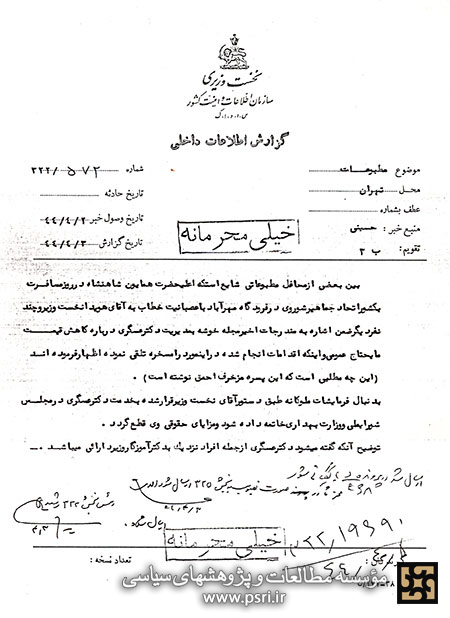 نخست وزیری
سازمان اطلاعات و امنیت کشور
گزارش اطلاعات داخلی
موضوع مطبوعات
شماره ۳۲۲/۵۷۲
محل تهران
تاریخ حادثه
عطف بشماره
تاریخ وصول خبر ۴۴/۴/۲
منبع خبر: حسینی
خیلی محرمانه
تاریخ گزارش ۴۴/۴/۳
تقویم: ب ۳
بین بعضی ازمحافل مطبوعاتی شایع استکه اعلیحضرت همایون شاهنشاه درروزمسافرت
بکشوراتحاد جماهیرشوروی درفرودگاه مهرآباد باعصبانیت خطاب به آقای هویدا نخست وزیروچند
نفردیگرضمن اشاره به مندرجات اخیرمجله خوشه بمدیریت دکترعسگری درباره کاهش قیمت
مایحتاج عمومی واینکه اقدامات انجام شده دراینمورد رامسخره تلقی نموده اظهارفرموده اند
(این چه مطلبی است که این پسره مزخرف احمق نوشته است) .
بدنبال فرمایشات ملوکانه طبق دستورآقای نخست وزیرقرارشده بخدمت دکترعسگری درمجلس
شورایملی ووزارت بهداری خاتمه داده شود ومزایای حقوقی وی قطع گردد .
توضیح آنکه گفته میشود دکترعسگری ازجمله افراد نزدیک بدکترآموزگاروزیرد ارائی میباشد .
خیلی محرمانه
تعداد نسخه :
مؤسسه مطالعات و پژوهشهای سیاسی
www.psri.ir